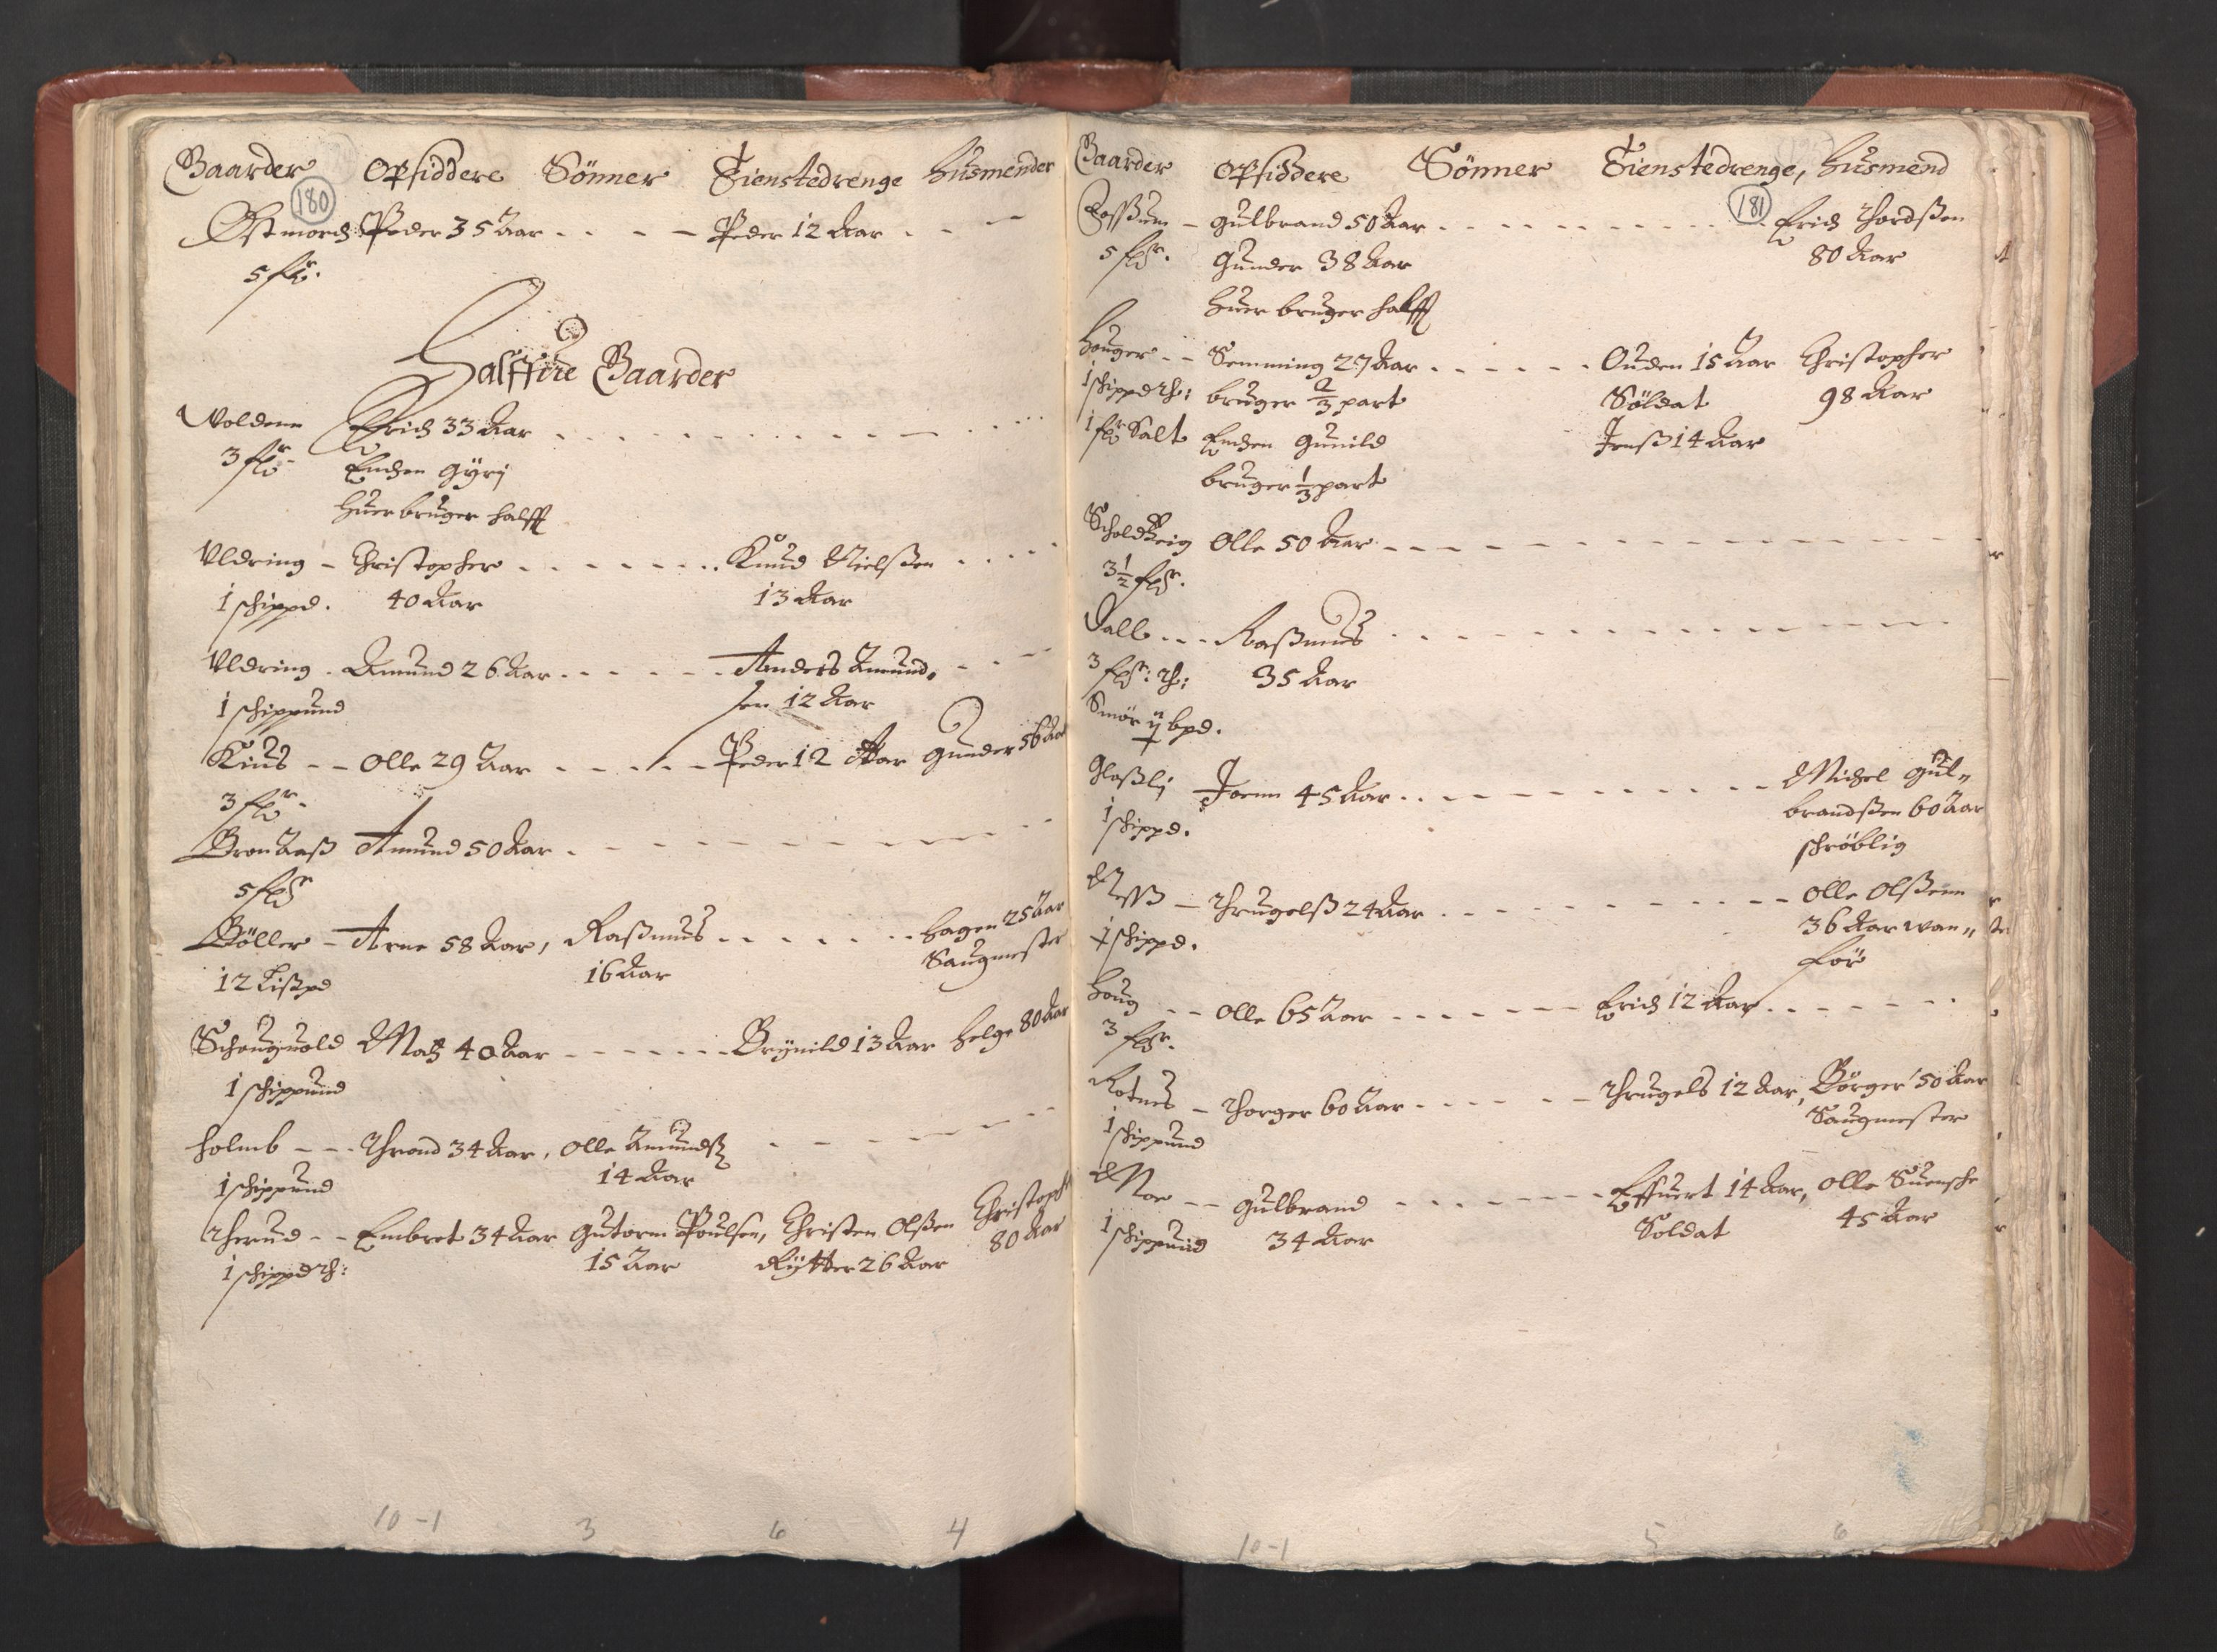 Gaarder Opsiddere Sönner Tienstedrenge Husmender
180
Østmorch Peder 35 Aar . . . - Peder 12 Aar . . -
5 fr.
Halffue Gaarder
Voldenn Erich 33 Aar
3 fr. Enchen Gÿrj
Huer bruger halff
Uldring - Christopher . . . . . . . Knud Nielsßen . . . .
1 schippd. 40 Aar 13 Aar
Uldring . Amund 26 Aar . . . . . . Anders Amund,
1 schippund sen 12 Aar
Kius - - Olle 29 Aar . . . . . - Peder 12 Aar Gunder 56 Aar
3 fr.
Gron Aaß Amund 50 Aar .
5 fr
Göller - Arne 58 Aar, Raßmus . . . . . . . Hagen 25 Aar
12 Lißpd 16 Aar Saugmester
Schougvold Matz 40 Aar - - - - - - - Brÿnild 13 Aar Helge 80 Aar
1 schippund
Holmb - - - Thrond 34 Aar, Olle Amundß
1 schippund 14 Aar
Therud - - Embret 34 Aar Gutorm Poulsen, Christen Olßen Christoph
1 schippd Th: 15 Aar Rÿtter 26 Aar 80 Aar
10-1 3 6 4
Gaarder Opsiddere Sönner Tienstedrenge, Husmend
181
Foßum - Gulbrand 50 Aar . . . . . . . . . Erich Thordßen
5 fr. Gunder 38 Aar 80 Aar
Huer bruger halff
Houger - - Semming 27 Aar . . . . . . Ouden 15 Aar Christopher
1 schippd Th: bruger 2/3 part Söldat 98 Aar
1 fr Salt Enchen Gunild Jenß 14 Aar
bruger 1/3 part
Olle 50 Aar - - -
3½ fr.
Dall - - - Raßmus
3 fr: Th: 35 Aar
Smör ij bpd.
Glaßlj Joenn 45 Aar . . . . . . . . . . Michel Gul„
1 schippd. brandßen 60 Aar
schröblig
Neß - Thrugelß 24 Aar . . . . . . . . . . Olle Olßenn
1 schippd. 36 Aar wan„
för
Houg - - Olle 65 Aar - - - - - - - Erich 12 Aar . . .
3 fr.
Rotnes - Thorger 60 Aar - - - - - - Thrugels 12 Aar, Börger 50 Aar
1 schippund Saugmester
Moe - - Gulbrand - - - - - - - Effuert 14 Aar, Olle Suensche
1 schippund 34 Aar Soldat 45 Aar
10-1 5 6